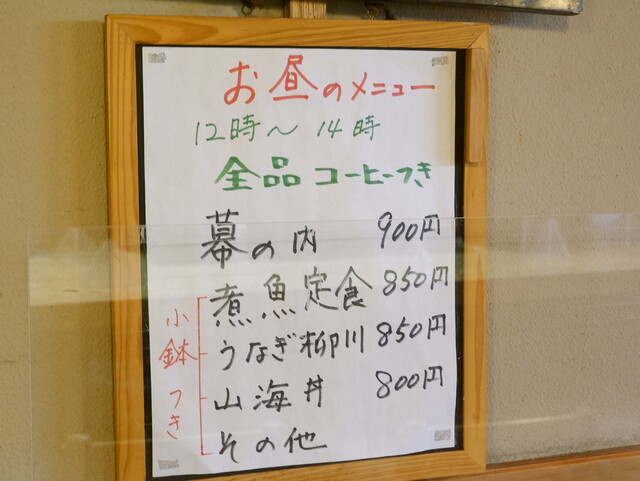 お昼のメニュー
12時〜14時
全品コーヒーつき
幕の内 900円
煮魚定食 850円
うなぎ柳川 850円
山海丼 800円
その他
小鉢つき